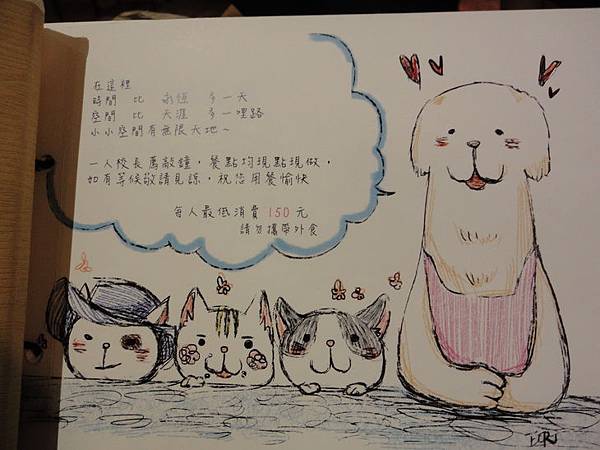 在這裡
時間 比 永恆 多一天
空間 比 天涯 多一哩路
小小空間有無限天地~
一人校長兼敲鐘，餐點均現點現做，
如有等候敬請見諒，祝您用餐愉快
每人最低消費150元
請勿攜帶外食